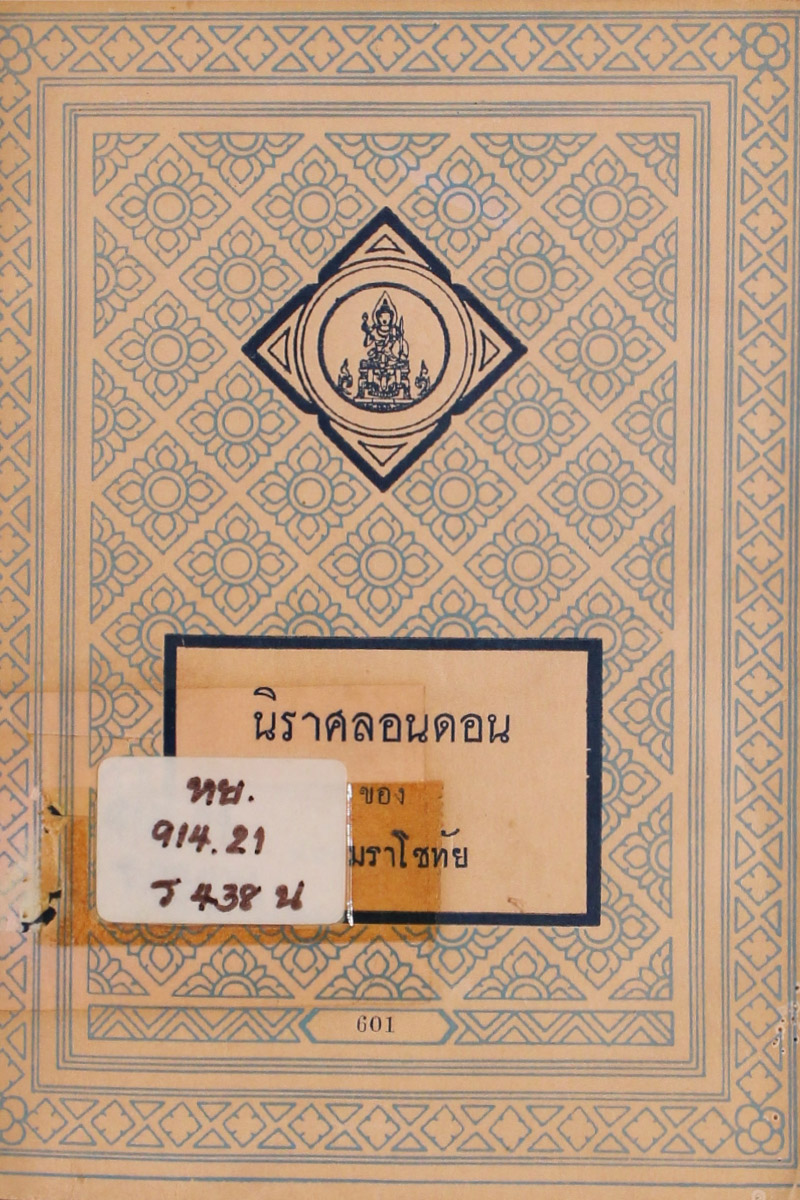 นิราศลอนดอน
ของ
มราโชทัย
ทย.
914.21
ร 438 น
601